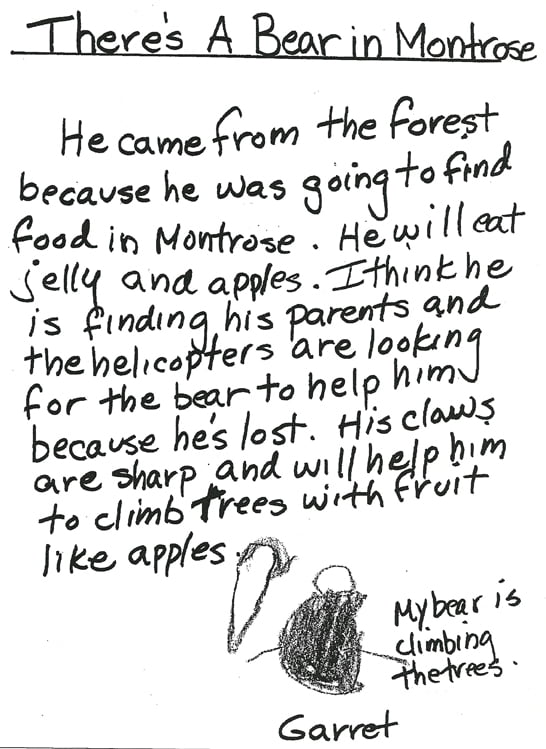 There's A Bear in Montrose
He came from the forest
because he was going to find
food in Montrose. He will eat
jelly and apples. I think he
is finding his parents and
the helicopters are looking
for the bear to help him
because he's lost. His claws
are sharp and will help him
to climb trees with fruit
like apples.
My bear is
climbing
the trees.
Garret